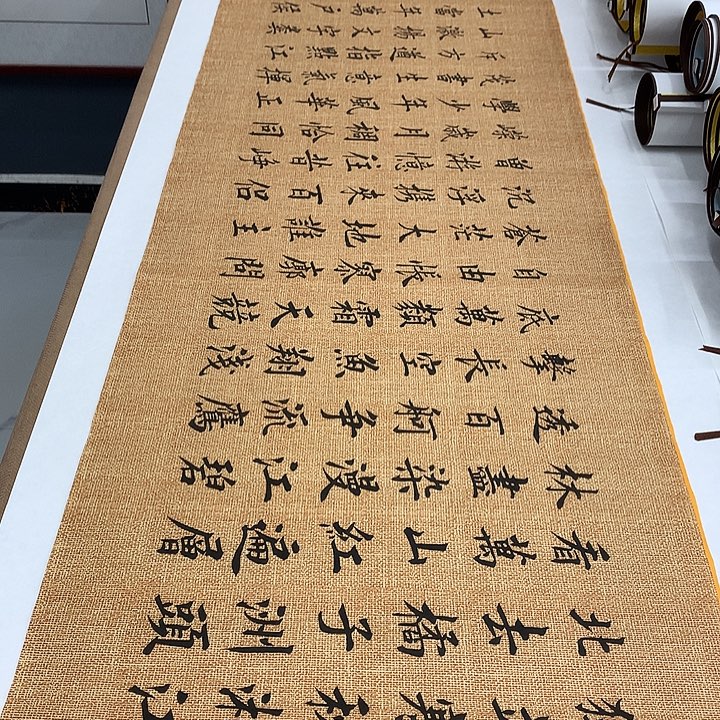 獨立寒秋湘江
北去橘子洲頭
看萬山紅遍層
林盡染漫江碧
透百舸争流鷹
擊長空魚翔淺
底萬類霜天競
自由悵寥廓問
蒼茫大地誰主
沉浮携來百侣
曾游憶往昔崢
嶸歲月稠恰同
學少年風華正
茂書生意氣揮
斥方遒指點江
山激揚文字糞
土當年萬户侯